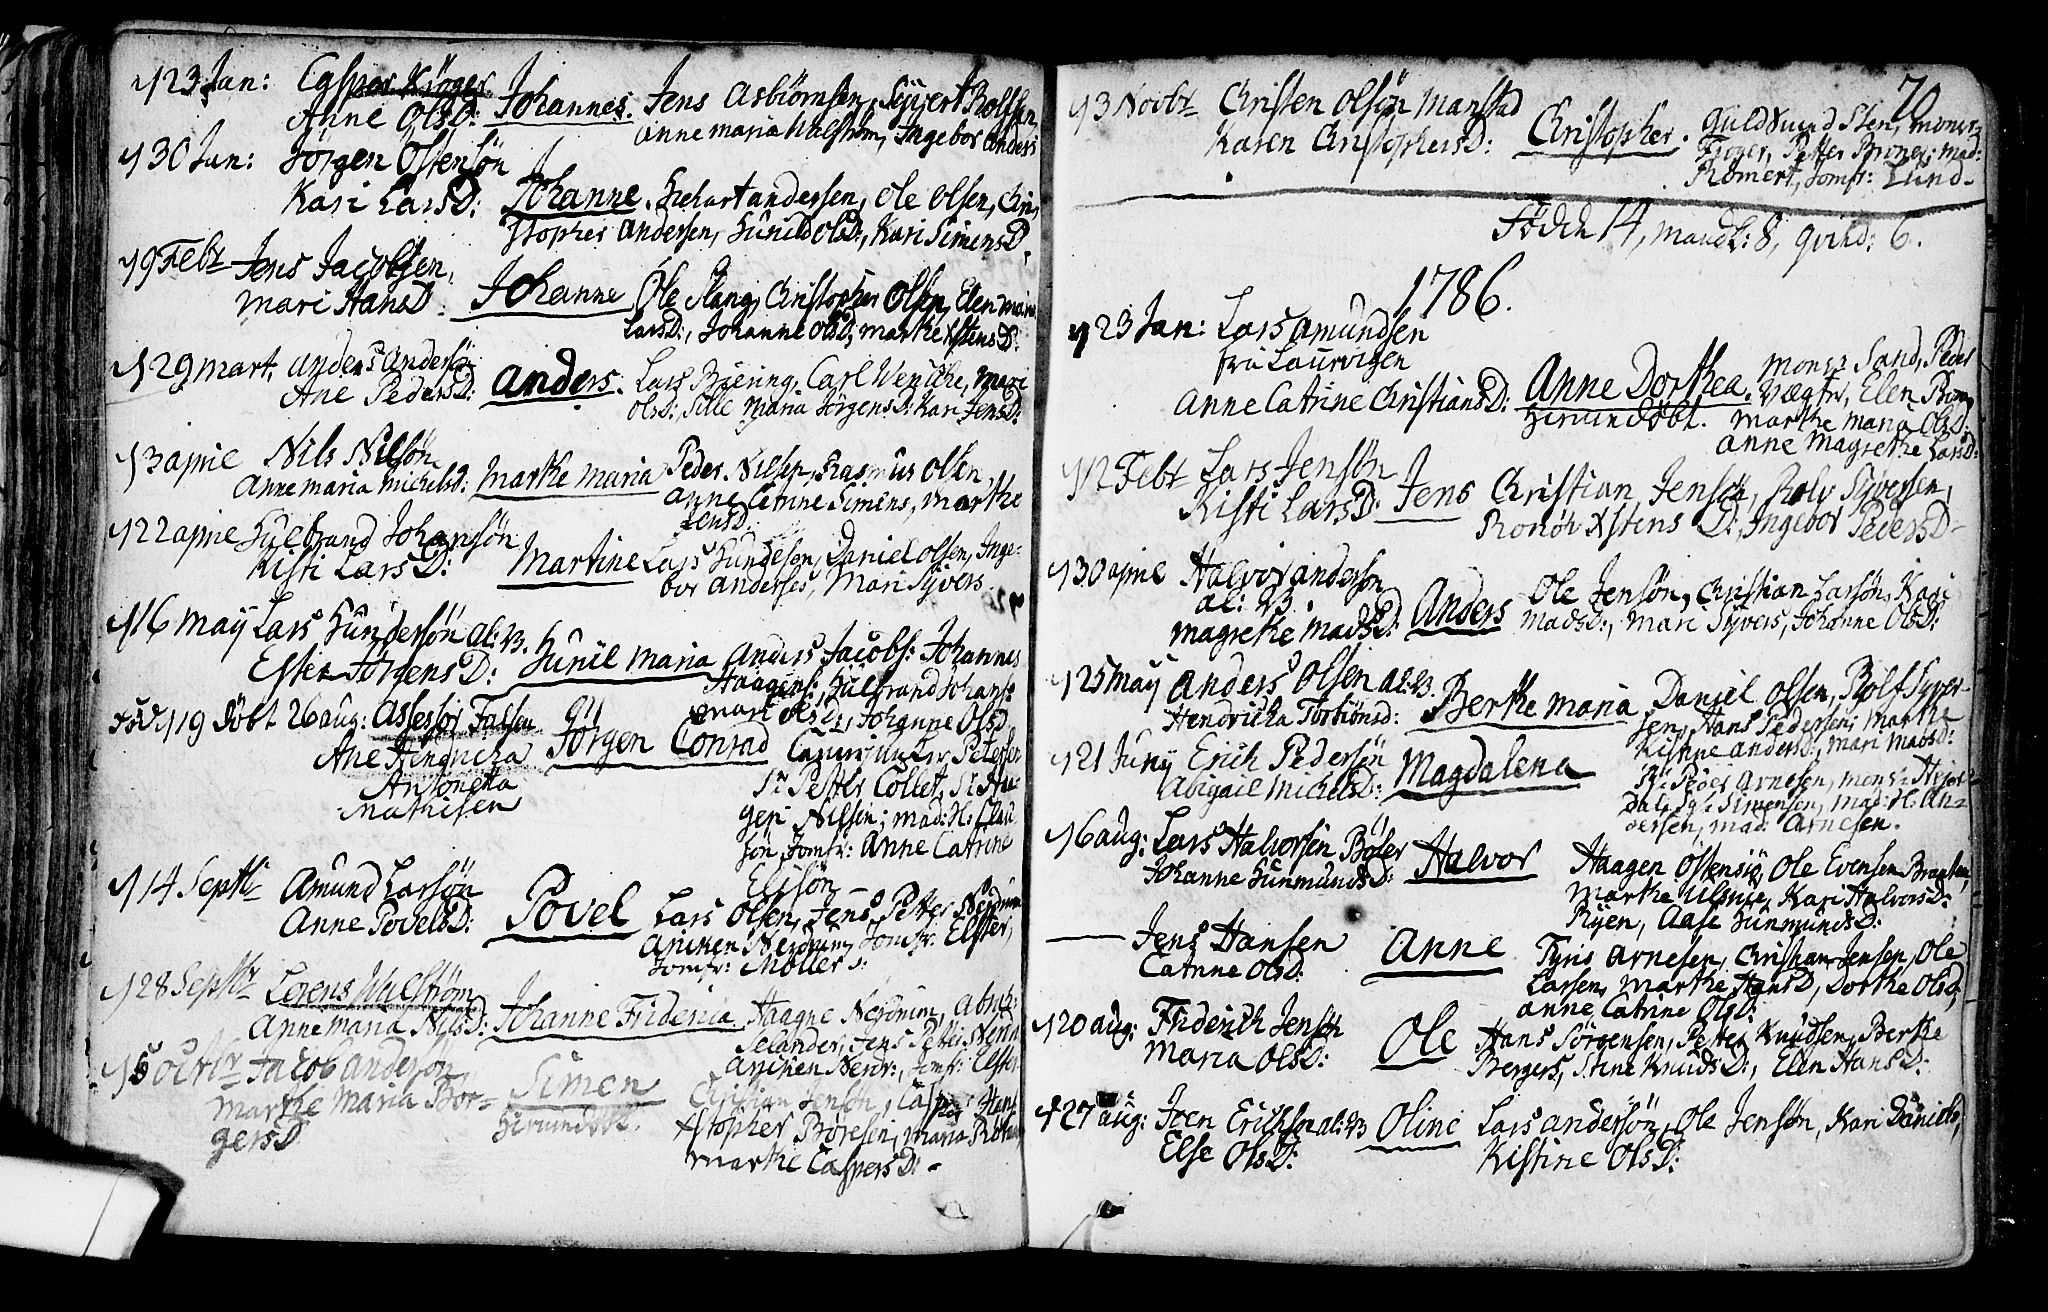 23 Jan: Caspar Krøger
Anne OlsD: Johannes. Jens Asbiörnsen, Syvert Rolfsen,
Anne Maria Walström, Ingebor Anders
30 Jan: Jörgen Östensön
Kari LarsD: Johanne. Andersen, Ole Olsen, Chri
stopher Andersen, Gunild OlsD:, Kari SimensD
19 Febr Jens Jacobsen,
Mari HansD: Johanne Ole Slang, Christopher Olsen, Elen Maria
LarsD:, Johanne OlsD; Marthe XstensD:
29 Mart, Anders Andersön
Ane PedersD: Anders. Lars Biering, Carl Wenche, Mari
OlsD:, Sille Maria JörgensD: Kari JensD:
13 Aprie Nils Nilsön
Anne Maria MichelsD: Marthe Maria Peder Nilsen, Rasmus Olsen,
Anne Catrine Simens, Marthe
JensD
22 Aprie Hülbrand Johansön
Kisti LarsD: Martine Lars Gundesen, Daniel Olsen, Inge-
bor Anderses, Mari Syvers
16 May Lars Gundersön al: B.
Ester JörgensD: Gunil Maria Anders Jacobs: Johannes
Haagens:, Hülbrand Johans:
Mari OlsD:, Johanne OlsD
19 döbt 26 aug: Assessor Falsen
Ane Hendricka Jörgen Conrad Petersen
Antonetta Sr Petter Collet, Sr An
Mathisen gen Nilsen; mad: H: Clau
sön, Jomfr: Anne Catrine
Elisön
14 Septbr Amund Larsön
Anne PovelsD: Povel Lars Olsen, Jens Petter Nerdrum
Anchen Nerdrum, Jomfr: Elster,
Jomfr: Möller
28 Septbr Lorens Walström
Anne Maria NilsD: Johanne Fridericia Haagne Nerdrum, Abrah:
Selander, Jens Petter Nerdr
Anchen Nerdr:, Jomfr: Elster
5 Octbr Jacob Anderson
Marthe Maria Bor= Simen Cristian Jensön, Casper Jens
gersD Hiemdöbt. Xstopher Böresen, Maria
Marthe CaspersD: -
70
13 Novbr Christen Olsön Manstad
Karen ChristophersD: Christopher. Guldsmed Sten, Monsr
Fröger, Petter Broner, Mad:
Römert, Jomfr: Lund-
Födde 14, Mandk: 8, qvind: 6.
1786.
23 Jan: Lars Amundsen
fra Laurvigen
Anne Catrine ChristiansD: Anne Dorthea. Monsr Sand, Peder
Hiemdöbt. Vægter, Elen
Marthe Maria OlsD:
Anne Magrethe LarsD:
12 Febr Lars Jensön
Kisti LarsD: Jens Christian Jensön, Rolv Syversen,
XstensD:, Ingebor PedersD-
30 Aprie Halvor Anderson
al: B.
Magrethe MadsD: Anders Ole Jensön, Christian Larsön, Kari
MadsD:, Mari Syvers, Johanne OlsD:
25 May Anders Olsen al: B.
Hendricka Torbiönsd: Berthe Maria Daniel Olsen, Rolf Syver-
sen, Hans Pedersen; Marthe
Kistine AndersD:, Mari MadsD:
21 Juny Erich Pedersön
Abigael MichelsD: Magdalena Sr: Peder Arnesen, Monsr: Heier-
dal, Sr: Simensen, Mad: H: An=
dersen, mad: Arnesen.
16 aug: Lars Halvorsen Böler
Johanne GunmundsD: Halvor Haagen Östensiö, Ole Evensen Bragsten,
Marthe Ulsrüe, Kari HalvorsD:
Ryen, Aase GunmundsD:
— Jens Hansen
Catrine OlsD: Anne Tyris Arnesen, Christian Jensen, Ole
Larsen, Marthe HansD, Dorthe OlsD,
Anne Catrine OlsD:
20 aug: Friderich Jensön
Maria OlsD: Ole Hans Sörgensen, Petter Knudsen, Berthe
Bergers, Stine KnudsD:, Elen HansD:
27 aug: Joen Erichsen al: B Oline Lars Andersön, Ole Jensön, Kari Daniels,
Else OlsD: Kistine OlsD: